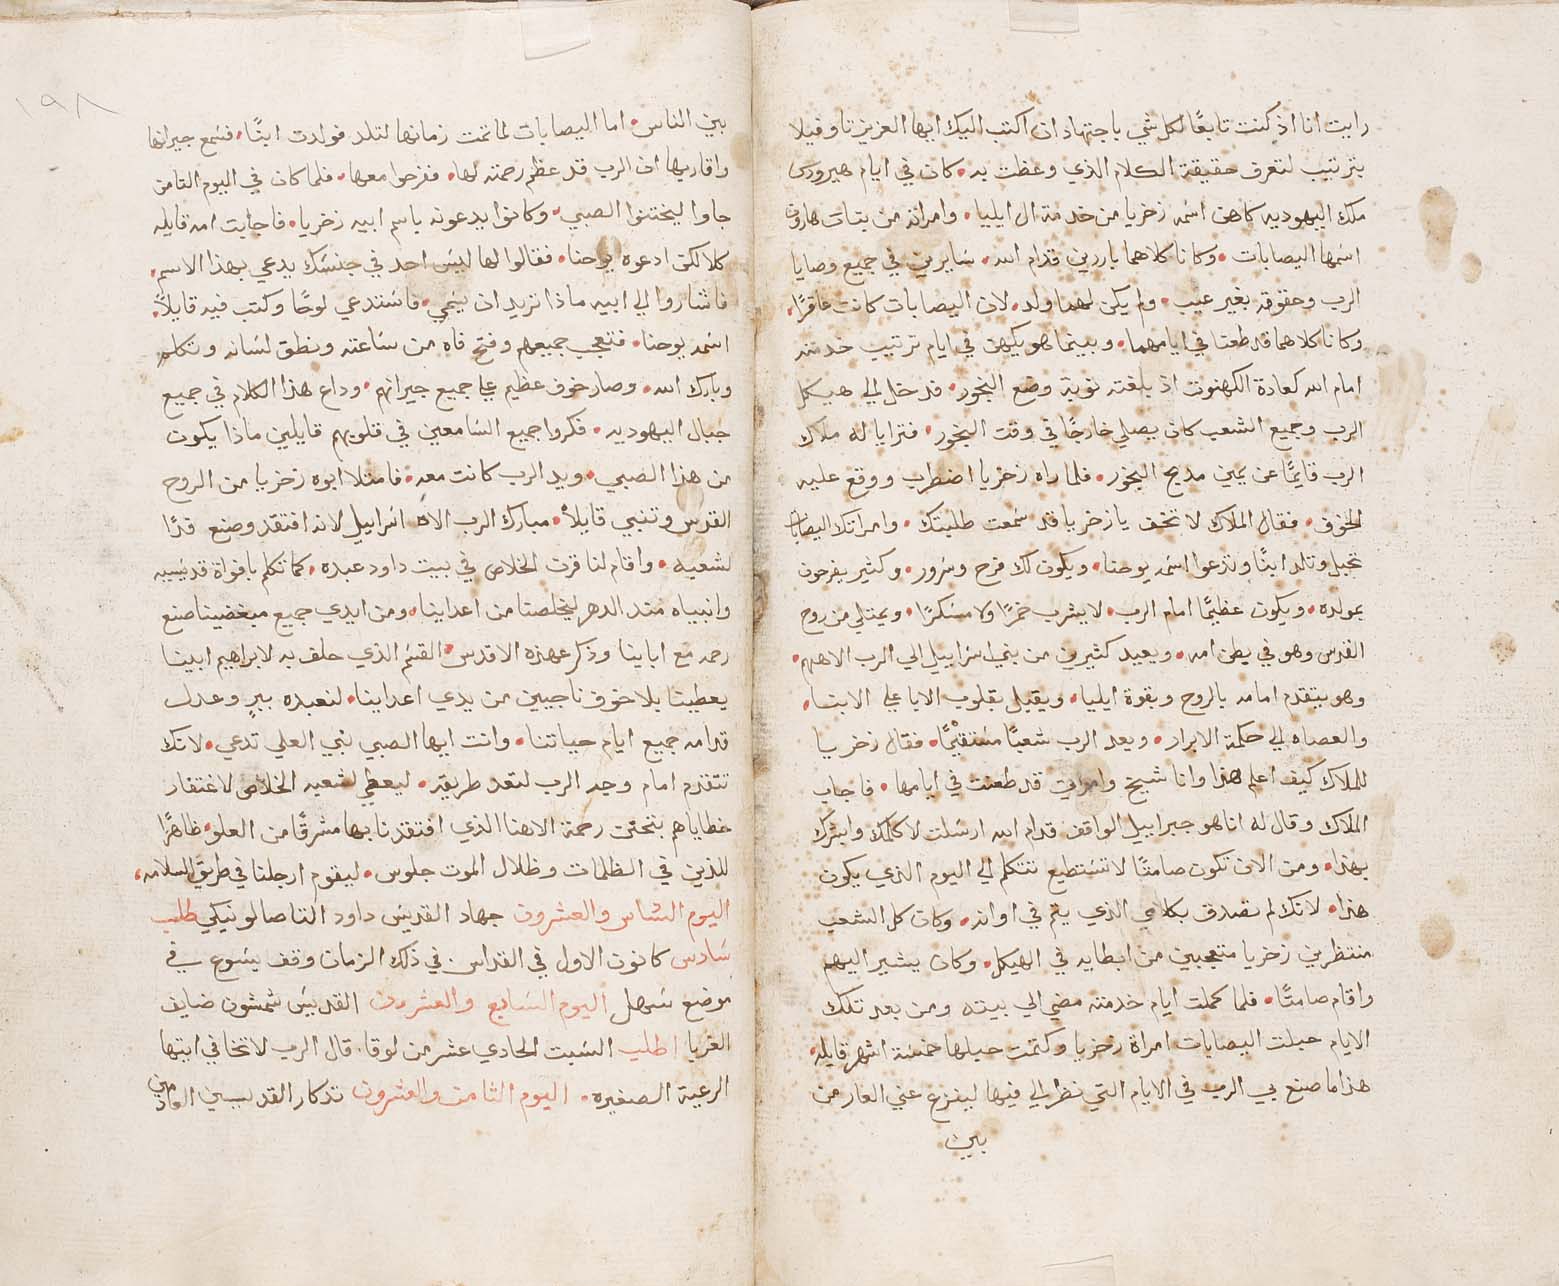 رايت انا اذ كنت تابعًا لكل شي باجتهاد ان اكتب اليك ايها العزيز تاوفيلا
بترتيب لتعرف حقيقة الكلام الذي وعظت به • كان في ايام هيرودس
ملك اليهوديه كاهن اسمه زخريا من خدمة ال ايليا • وامراته من بنات هارون
اسمها اليصابات • وكانا كلاهما بارين قدام الله • سايرين في جميع وصايا
الرب وحقوقه بغير عيب • ولم يكن لهما ولد • لان اليصابات كانت عاقرًا •
وكانا كلاهما قد طعنا في ايامهما • وبينما هو يكهن في ايام ترتيب خدمته
امام الله كعادة الكهنوت اذ بلغته نوبة وضع البخور • فدخل الي هيكل
الرب وجميع الشعب كان يصلي خارجًا في وقت البخور • فترايا له ملاك
الرب قايمًا عن يمين مذبح البخور • فلما راه زخريا اضطرب ووقع عليه
الخوف • فقال الملاك لا تخف يا زخريا قد سمعت طلبتك • وامراتك اليصابات
تحبل وتلد ابنًا وتدعوا اسمه يوحنا • ويكون لك فرح وسرور • وكثير يفرحون
بمولده • ويكون عظيمًا امام الرب • لا يشرب خمرًا ولا مسكرًا • ويمتلي من روح
القدس وهو في بطن امه • ويعيد كثيرين من بني اسراييل الي الرب الاههم •
وهو يتقدم امامه بالروح وبقوة ايليا • ويقبل بقلوب الابا علي الابنا •
والعصاه الي حكمة الابرار • ويعد الرب شعبًا مستقيمًا • فقال زخريا
للملاك كيف اعلم هذا وانا شيخ وامراتي قد طعنت في ايامها • فاجاب
الملاك وقال له انا هو جبراييل الواقف قدام الله ارسلت لاكلمك وابشرك
بهذا • ومن الان تكون صامتًا لا تستطيع تتكلم الي اليوم الذي يكون
هذا • لانك لم تصدق بكلامي الذي يتم في اوانه • وكان كل الشعب
منتظرين زخريا متعجبين من ابطايه في الهيكل • وكان يشير اليهم
واقام صامتًا • فلما كملت ايام خدمته مضي الي بيته ومن بعد تلك
الايام حبلت اليصابات امراة زخريا وكتمت حبلها خمسة اشهر قايله •
هذا ما صنع بي الرب في الايام التي نظر الي فيها لينزع عني العار من
بين
١٩٨
بين الناس • اما اليصابات لما تمت زمانها لتلد فولدت ابنًا • فسمع جيرانها
واقاربها ان الرب قد عظم رحمته لها • ففرحوا معها • فلما كان في اليوم الثامن
جاوا ليختنوا الصبي • وكانوا يدعونه باسم ابيه زخريا • فاجابت امه قايله
كلا لكن ادعوه يوحنا • فقالوا لها ليس احد في جنسك يدعي بهذا الاسم •
فاشاروا الي ابيه ماذا تريد ان يسمي • فاستدعي لوحًا وكتب فيه قايلًا •
اسمه يوحنا • فتعجب جميعهم وفتح فاه من ساعته ونطق لسانه وتكلم
وبارك الله • وصار خوف عظيم علي جميع جيرانهم • وذاع هذا الكلام في جميع
جبال اليهوديه • فكروا جميع السامعين في قلوبهم قايلين ماذا يكون
من هذا الصبي • ويد الرب كانت معه • فامتلا ابوه زخريا من الروح
القدس وتنبي قايلًا • مبارك الرب الاه اسراييل لانه افتقد وصنع فدًا
لشعبه • واقام لنا قرن الخلاص في بيت داود عبده • كما تكلم بافواة قديسيه
وانبياه منذ الدهر ليخلصنا من اعداينا • ومن ايدي جميع مبغضينا صنع
رحمه مع اباينا وذكر عهده الاقدس • القسم الذي حلف به لابراهيم ابينا
يعطينا بلا خوف ناجيين من يدي اعداينا • لنعبده ببرٍ وعدل
قدامه جميع ايام حياتنا • وانت ايها الصبي نبي العلي تدعي • لانك
تتقدم امام وجه الرب لتعد طريقه • ليعطي لشعبه الخلاص لاغتفار
خطاياهم بتحنن رحمة الاهنا الذي افتقدنا بها مشرقًا من العلو • ظاهرًا
للذين في الظلمات وظلال الموت جلوس • ليقوم ارجلنا في طريق السلامه •
اليوم السادس والعشرون جهاد القديس داود التاصالونيكي طلب
سادس كانون الاول في القداس • في ذلك الزمان وقف يسوع في
موضع سهل اليوم السابع والعشرون القديس شمشون ضايف
الغربا اطلب السبت الحادي عشر من لوقا • قال الرب لا تخافي ايتها
الرعية الصغيره • اليوم الثامن والعشرون تذكار القديسين العادمين